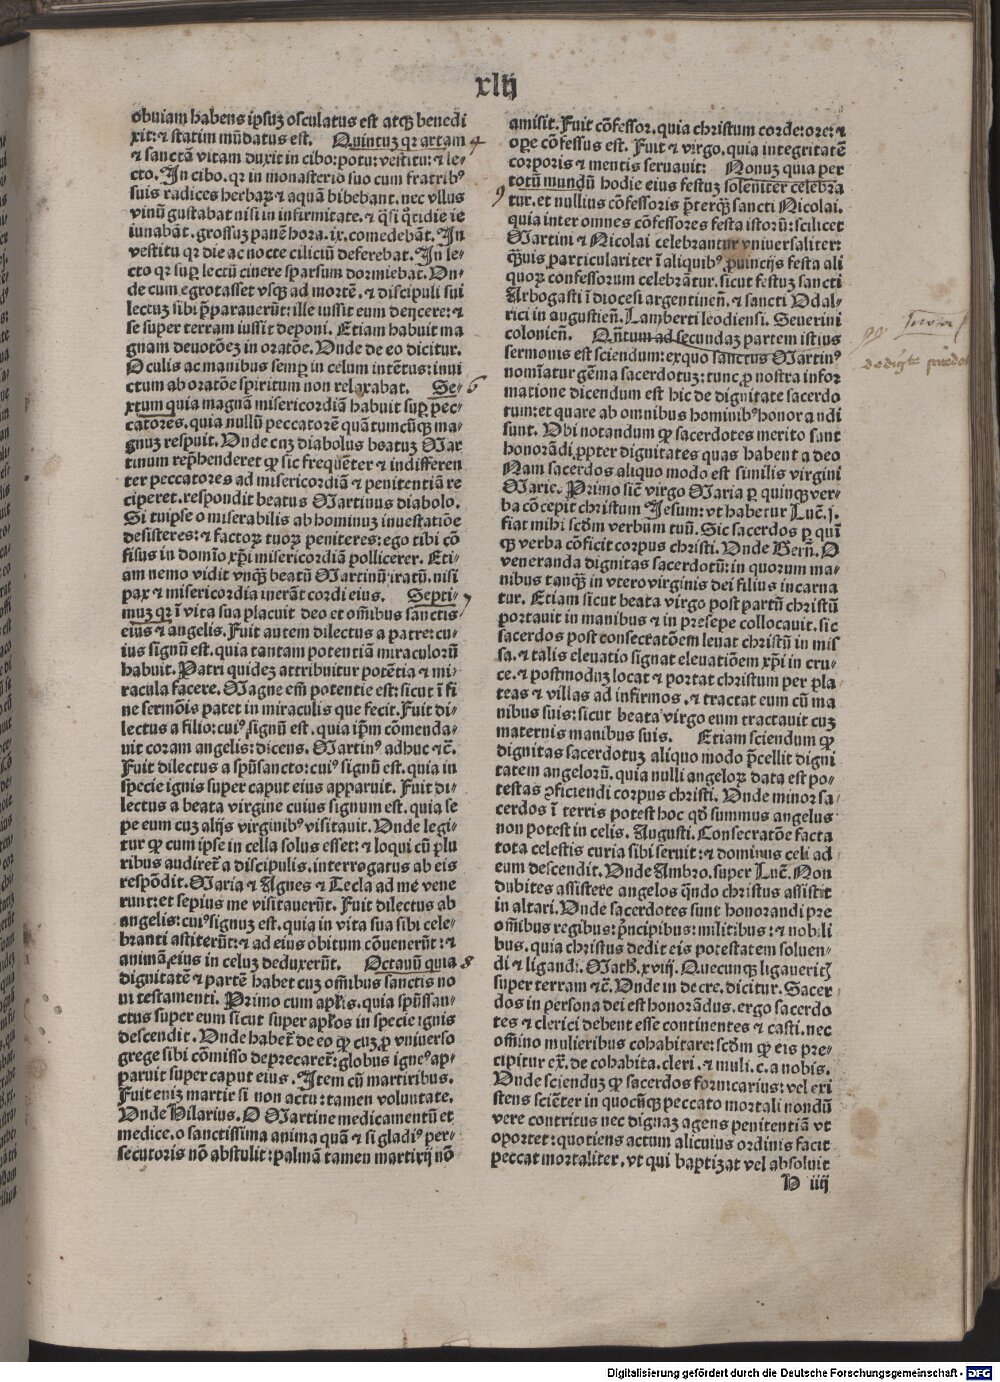 xlij
obuiam habens ipsuȝ osculatus est atqȝ benedi
xit: ⁊ statim mūdatus est. Quintuȝ qꝛ artam 4
⁊ sanctā vitam duxit in cibo: potu: vestitu: ⁊ le-
cto. In cibo. qꝛ in monasterio suo cum fratribꝰ
suis radices herbaꝝ ⁊ aquā bibebant. nec vllus
vinū gustabat nisi in infirmitate. ⁊ q̄si q̄tidie ie
iunabāt. grossuȝ panē hora. ix. comedebāt. In
vestitu qꝛ die ac nocte ciliciū deferebat. In le-
cto qꝛ suꝑ lectū cinere sparsum dormiebat. Vn-
de cum egrotasset vsqȝ ad mortē. ⁊ discipuli sui
lectuȝ sibi p̄parauerūt: ille iussit eum deijcere: ⁊
se super terram iussit deponi. Etiam habuit ma
gnam deuotōeȝ in oratōe. Vnde de eo dicitur.
Oculis ac manibus semꝑ in celum intētus: inui
ctum ab oratōe spiritum non relaxabat. Se- 6
xtum quia magnā misericordiā habuit suꝑ pec-
catores. quia nullū peccatorē quātumcūqȝ ma-
gnuȝ respuit. Vnde cuȝ diabolus beatuȝ Mar
tinum rep̄henderet ꝙ sic frequēter ⁊ indifferen
ter peccatores ad misericordiā ⁊ penitentiā re
ciperet. respondit beatus Martinus diabolo.
Si tuipse o miserabilis ab hominuȝ inuestatiōe
desisteres: ⁊ factoꝝ tuoꝝ peniteres: ego tibi cō
fisus in domīo xp̄i misericordiā pollicerer. Eti-
am nemo vidit vnqȝ beatū Martinū iratū. nisi
pax ⁊ misericordia inerāt cordi eius. Septi- 7
muȝ qꝛ ī vita sua placuit deo et om̄ibus sanctis
eius ⁊ angelis. Fuit autem dilectus a patre: cu-
ius signū est. quia tantam potentiā miraculorū
habuit. Patri quideȝ attribuitur potētia ⁊ mi-
racula facere. Magne em̄ potentie est: sicut ī fi
ne sermōis patet in miraculis que fecit. Fuit di-
lectus a filio: cuiꝰ signū est. quia ip̄m cōmenda-
uit coram angelis: dicens. Martinꝰ adhuc ⁊c̄.
Fuit dilectus a spūsancto: cuiꝰ signū est. quia in
specie ignis super caput eius apparuit. Fuit di-
lectus a beata virgine cuius signum est. quia se
pe eum cuȝ alijs virginibꝰ visitauit. Vnde legi-
tur ꝙ cum ipse in cella solus esset: ⁊ loqui cū plu
ribus audiret̄ a discipulis. interrogatus ab eis
respōdit. Maria ⁊ Agnes ⁊ Tecla ad me vene
runt: et sepius me visitauerūt. Fuit dilectus ab
angelis: cuiꝰ signuȝ est. quia in vita sua sibi cele-
branti astiterūt: ⁊ ad eius obitum cōuenerūt: ⁊
animā eius in celuȝ deduxerūt. Octauū quia 8
dignitatē ⁊ partē habet cuȝ om̄ibus sanctis no
ui testamenti. Primo cum apl̄is. quia spūssan-
ctus super eum sicut super apl̄os in specie ignis
descendit. Vnde habet̄ de eo ꝙ cuȝ ꝓ vniuerso
grege sibi cōmisso deprecaret̄: globus igneꝰ ap-
paruit super caput eius. Item cū martiribus.
Fuit eniȝ martir si non actu: tamen voluntate.
Vnde Hilarius. O Martine medicamentū et
medice. o sanctissima anima quā ⁊ si gladiꝰ per-
secutoris nō abstulit: palmā tamen martirij nō
amisit. Fuit cōfessor. quia christum corde: ore: ⁊
oꝑe cōfessus est. Fuit ⁊ virgo. quia integritatē
corporis ⁊ mentis seruauit: Nonuȝ quia per
9 totū mundū hodie eius festuȝ soleniter celebra
tur. et nullius cōfessoris p̄terqȝ sancti Nicolai.
quia inter omnes cōfessores festa istorū: scilicet
Martini ⁊ Nicolai celebrantur vniuersaliter:
qȝuis particulariter ī aliquibꝰ ꝓuincijs festa ali
quoꝝ confessorum celebrātur. sicut festuȝ sancti
Arbogasti ī diocesi argentineñ. ⁊ sancti Vdal-
rici in augustieñ. Lamberti leodiensi. Seuerini
colonieñ. Q̄ntum ad secundaȝ partem istius
sermonis est sciendum: exquo sanctus Martinꝰ
nomīatur gēma sacerdotuȝ: tunc ꝓ nostra infor
matione dicendum est hic de dignitate sacerdo
tum: et quare ab omnibus hominibꝰ honorandi
sunt. Vbi notandum ꝙ sacerdotes merito sunt
honorādi ꝓpter dignitates quas habent a deo
Nam sacerdos aliquo modo est similis virgini
Marie. Primo sic̄ virgo Maria ꝑ quinqȝ ver-
ba cōcepit christum Jesum: vt habetur Luc̄. j.
fiat mihi scd̄m verbum tuū. Sic sacerdos ꝑ quī
qȝ verba cōficit corpus christi. Vnde Berñ. O
veneranda dignitas sacerdotū: in quorum ma-
nibus tanqȝ in vtero virginis dei filius incarna
tur. Etiam sicut beata virgo post partū christū
portauit in manibus ⁊ in presepe collocauit. sic
sacerdos post consecratōem leuat christū in mis
sa. ⁊ talis eleuatio signat eleuatiōem xp̄i in cru-
ce. ⁊ postmoduȝ locat ⁊ portat christum per pla-
teas ⁊ villas ad infirmos. ⁊ tractat eum cū ma
nibus suis: sicut beata virgo eum tractauit cuȝ
maternis manibus suis. Etiam sciendum ꝙ
dignitas sacerdotuȝ aliquo modo p̄cellit digni
tatem angelorū. quia nulli angeloꝝ data est po-
testas ꝯficiendi corpus christi. Vnde minor sa-
cerdos ī terris potest hoc qd̄ summus angelus
non potest in celis. Augusti. Consecratōe facta
tota celestis curia sibi seruit: ⁊ dominus celi ad
eum descendit. Vnde Ambro. super Luc̄. Non
dubites assistere angelos q̄ndo christus assistit
in altari. Vnde sacerdotes sunt honorandi pre
om̄ibus regibus: p̄ncipibus: militibus: ⁊ nobili
bus. quia christus dedit eis potestatem soluen-
di ⁊ ligandi. Math̄. xviij. Quecunqȝ ligaueritȝ
super terram ⁊c̄. Vnde in decre. dicitur. Sacer
dos in persona dei est honorādus. ergo sacerdo
tes ⁊ clerici debent esse continentes ⁊ casti. nec
om̄ino mulieribus cohabitare: scd̄m ꝙ eis pre-
cipitur ex̄. de cohabita. cleri. ⁊ muli. c. a nobis.
Vnde sciendum ꝙ sacerdos fornicarius: vel exi
stens sciēter in quocūqȝ peccato mortali nondū
vere contritus nec dignaȝ agens penitentiā vt
oportet: quotiens actum alicuius ordinis facit
peccat mortaliter. vt qui baptizat vel absoluit
H iiij
Digitalisierung gefördert durch die Deutsche Forschungsgemeinschaft - DFG